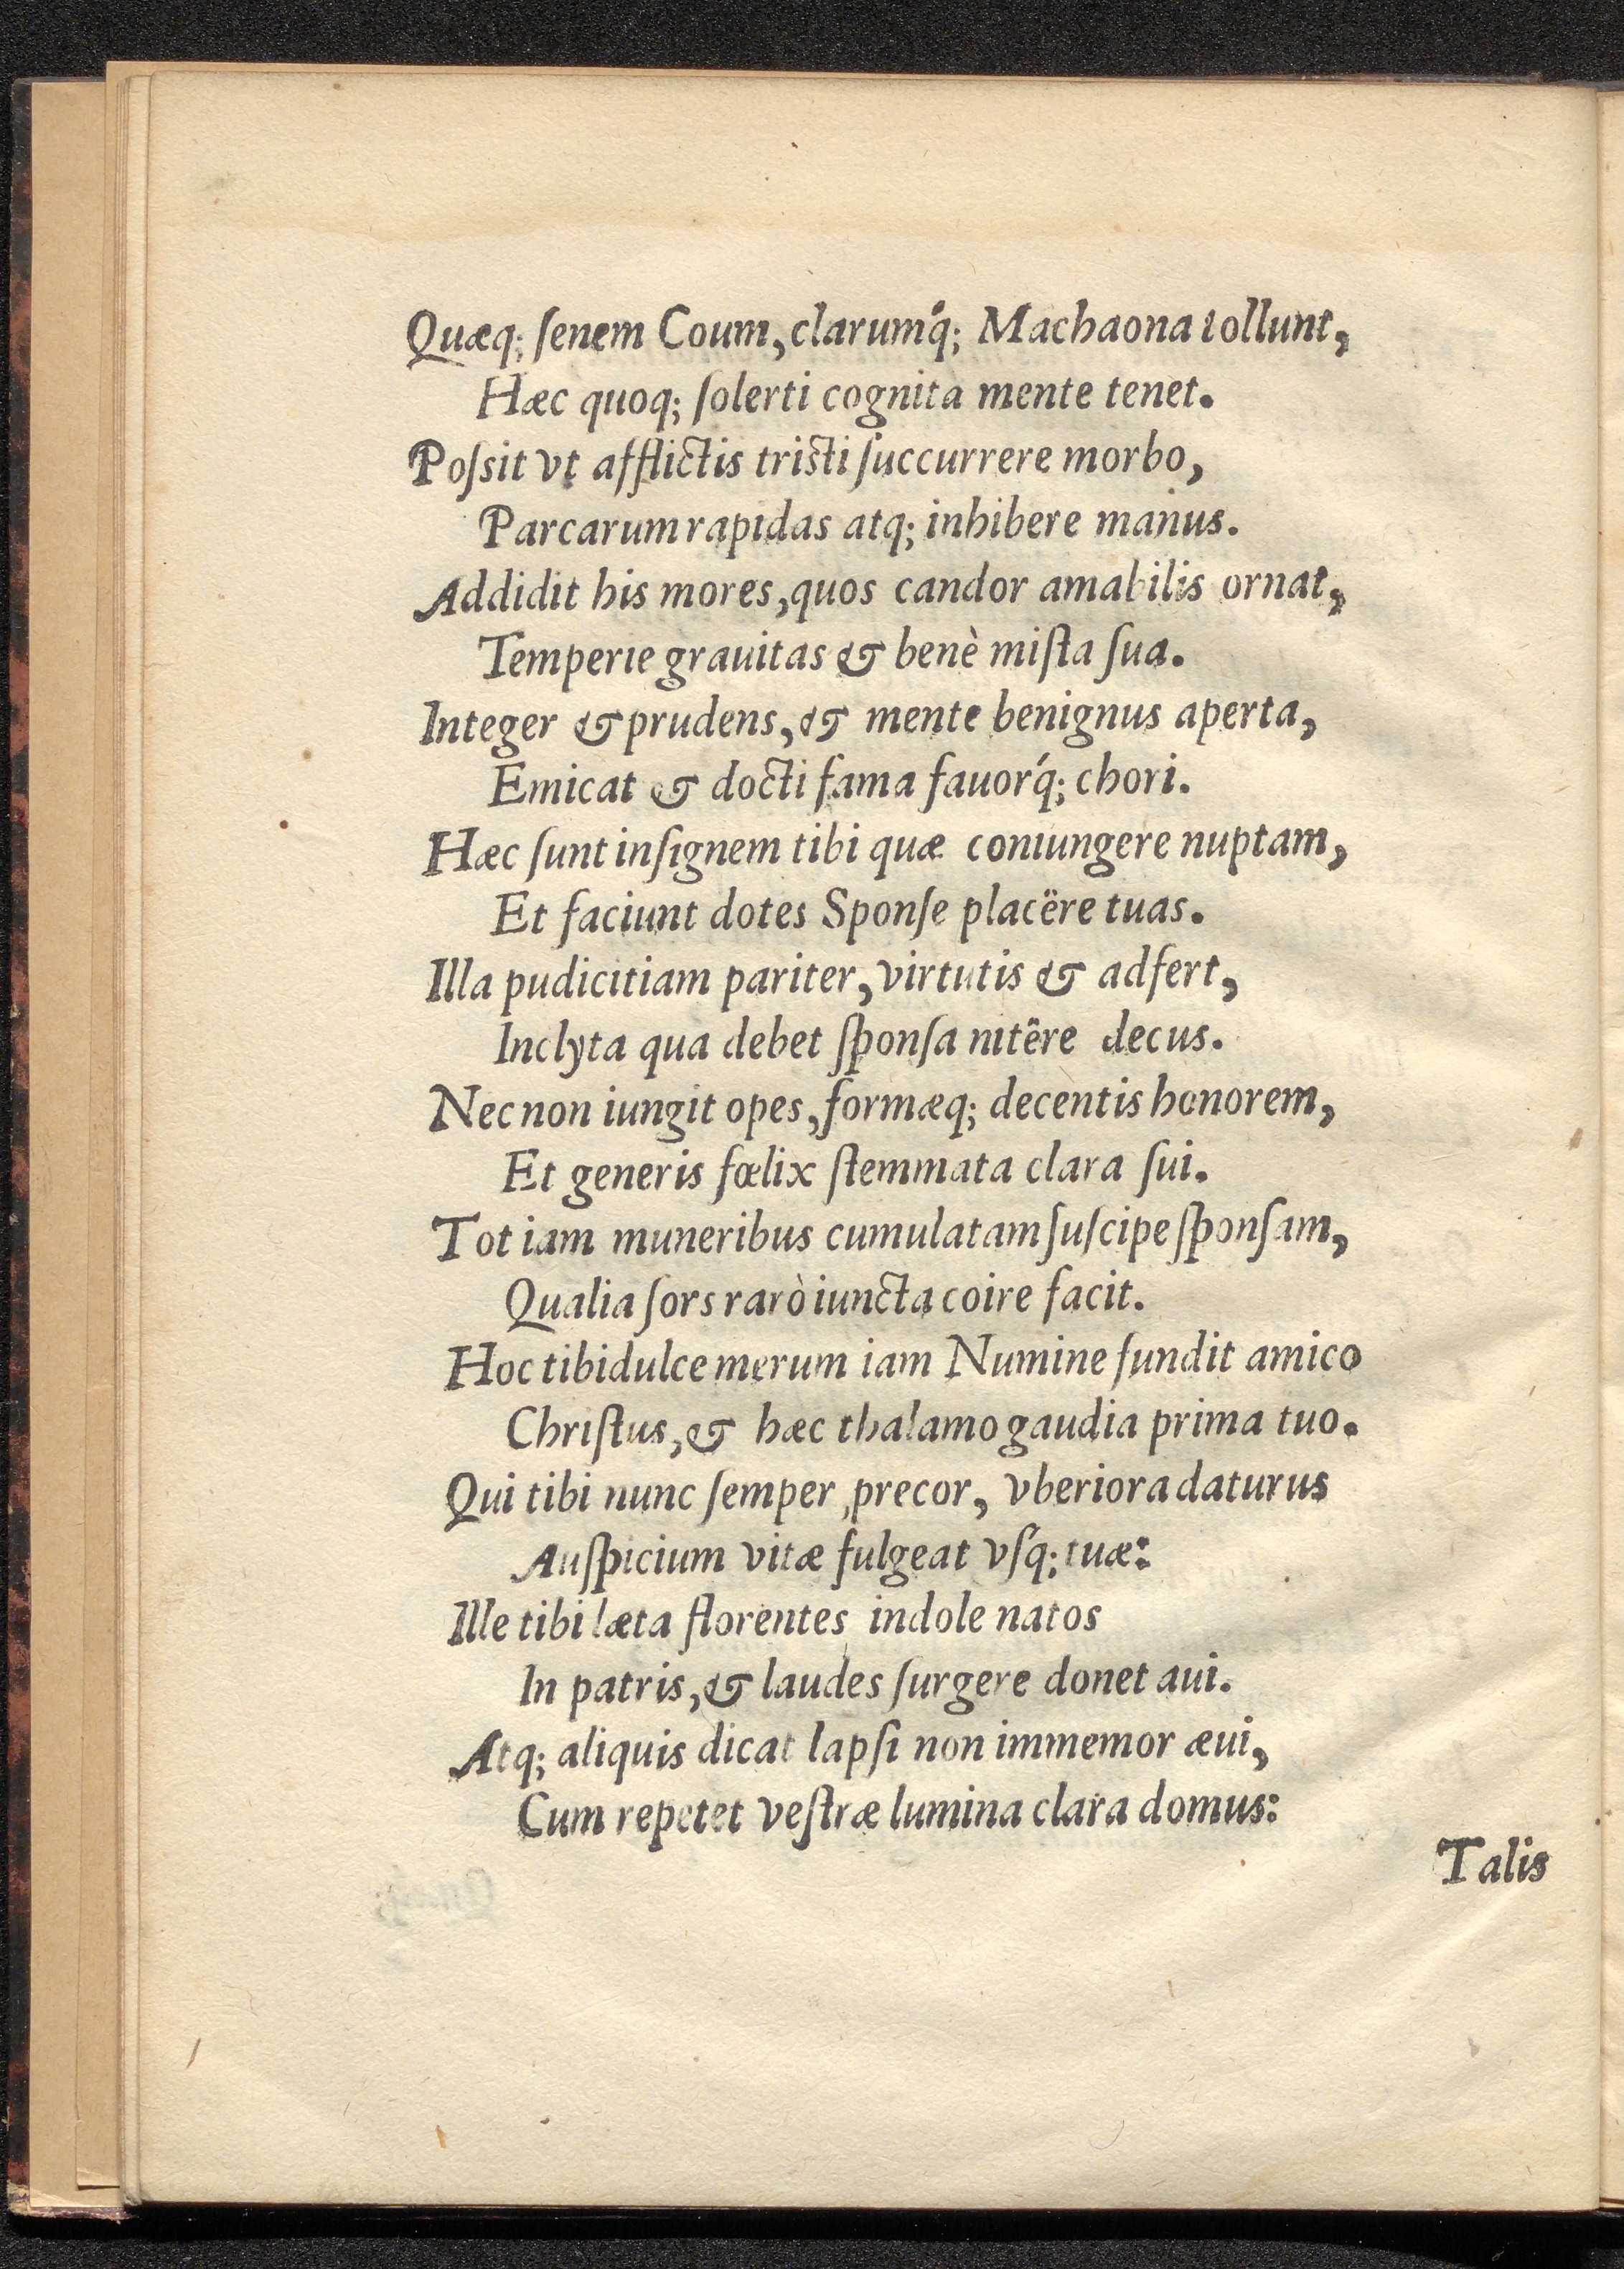 Quæq; ſenem Coum, clarumq́; Machaona tollunt,
Hæc quoq; ſolerti cognita mente tenet.
Poſsit vt afflictis tristi ſuccurrere morbo,
Parcarum rapidas atq; inhibere manus.
Addidit his mores, quos candor amabilis ornat,
Temperie grauitas & benè miſta ſua.
Integer & prudens, & mente benignus aperta,
Emicat & docti fama fauorq́; chori.
Hæc ſunt inſignem tibi quæ coniungere nuptam,
Et faciunt dotes Sponſe placëre tuas.
Illa pudicitiam pariter, virtutis & adfert,
Inclyta qua debet ſponſa nitëre decus.
Nec non iungit opes, formæq; decentis honorem,
Et generis fœlix ſtemmata clara ſui.
Tot iam muneribus cumulatam ſuſcipe ſponſam,
Qualia ſors rarò iuncta coire facit.
Hoc tibi dulce merum iam Numine fundit amico
Chriſtus, & hæc thalamo gaudia prima tuo.
Qui tibi nunc ſemper, precor, vberiora daturus
Auſpicium vitæ fulgeat vſq́; tuæ:
Ille tibi læta florentes indole natos
In patris, & laudes ſurgere donet aui.
Atq; aliquis dicat lapſi non immemor æui,
Cum repetet veſtræ lumina clara domus:
Talis